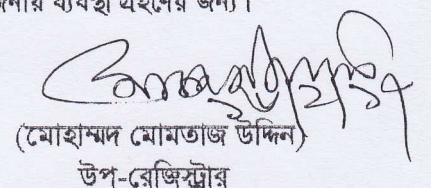 ব্যবস্থা গ্রহণের জন্য।
(মোহাম্মদ মোমতাজ উদ্দিন)
উপ-রেজিস্ট্রার